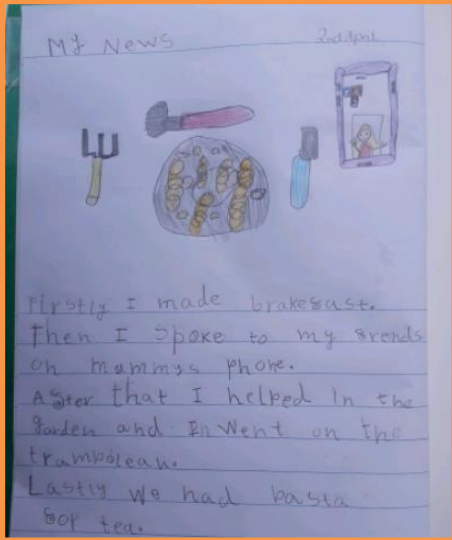 My News 2nd April
Firstly I made brakefast.
Then I spoke to my frends
on mummys phone.
After that I helped in the
garden and I went on the
trampolean.
Lastly we had pasta
for tea.